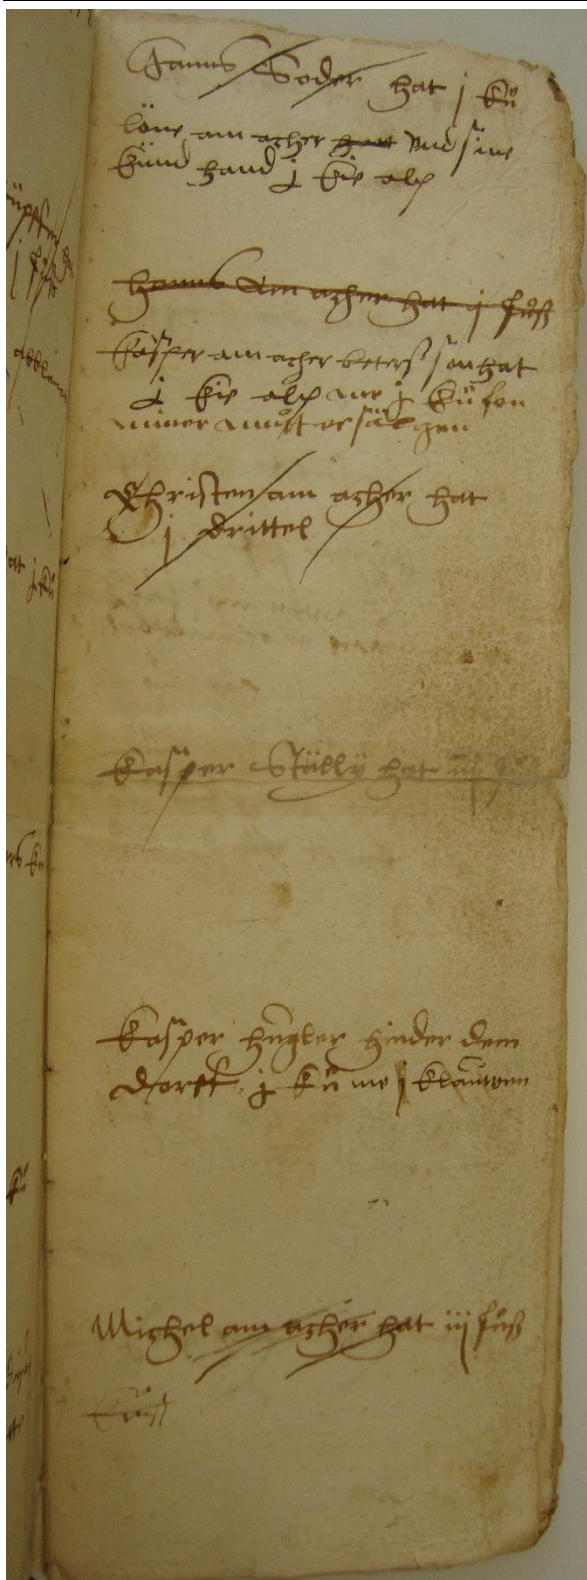 Hanns Soder hat j ků
löne am acher hatt und sine
künd hand j kie alp
hanns Am acher hat ij fůß
Kasper am acher beterß son hat
j kie alp me j ků fon
miner můtter sälgen
Christen am acher hat
j drittel
Kasper Ställy hat iij fůß
Kasper hůgler hinder dem
dorff j ků me j klauwen
Michel am acher hat iij fůß